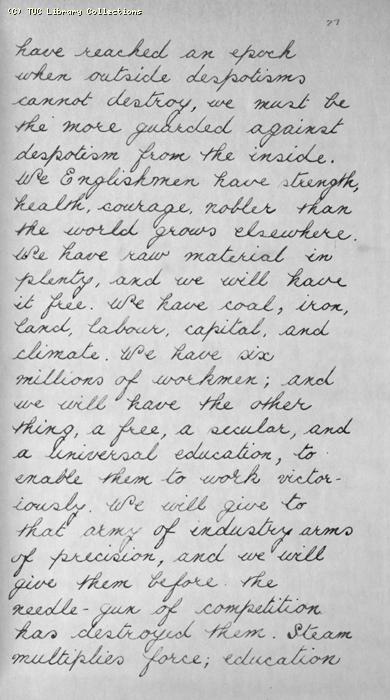 (C) TUC Library Collections
have reached an epoch
when outside despotisms
cannot destroy, we must be
the more guarded against
despotism from the inside.
We Englishmen have strength,
health, courage, nobler than
the world grows elsewhere.
We have raw material in
plenty, and we will have
it free. We have coal, iron,
land, labour, capital, and
climate. We have six
millions of workmen; and
we will have the other
thing, a free, a secular, and
a universal education, to
enable them to work victor-
iously. We will give to
that army of industry arms
of precision, and we will
give them before the
needle-gun of competition
has destroyed them. Steam
multiplies force; education